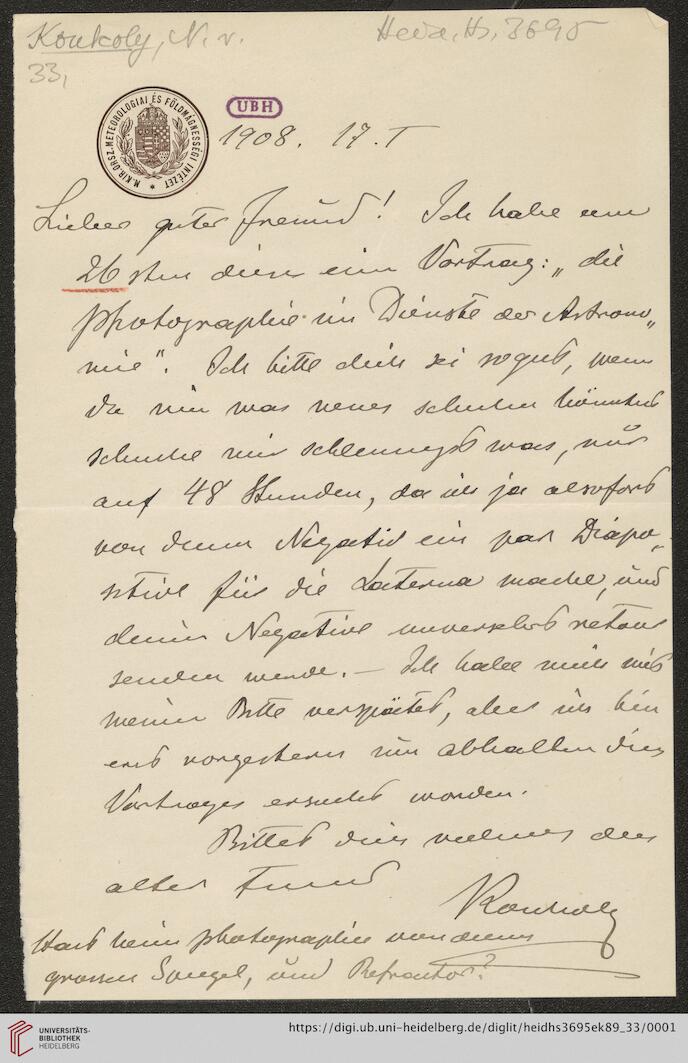 Konkoly, N. v.
Heid. Hs. 3695
33,
M. KIR. ORSZ. METEOROLOGIAI ÉS FÖLDMÁGNESSÉGI INTÉZET
UBH
1908. 17. I
Lieber guter Freund! Ich habe am
26sten dieses einen Vortrag: „die
Photographie im Dienste der Astrono„
mie“. Ich bitte dich sei sogut, wenn
du mir was neues schicken könntest
schicke mir schleunigst was, nur
auf 48 Stunden, da ich ja alsofort
von deinem Negativ ein par Diapo„
sitive für die Laterna mache, und
deine Negative unversehrt retour
senden werde. – Ich habe mich mit
meiner Bitte verspätet, aber ich bin
erst vorgestern um abhalten dies
Vortrages ersucht worden.
Bittet dich vielmals dein
alter Freund
Konkoly
Hast keine photographie von deinem
grossen Spiegel, und Refractor?
UNIVERSITÄTS-
BIBLIOTHEK
HEIDELBERG
https://digi.ub.uni-heidelberg.de/diglit/heidhs3695ek89_33/0001